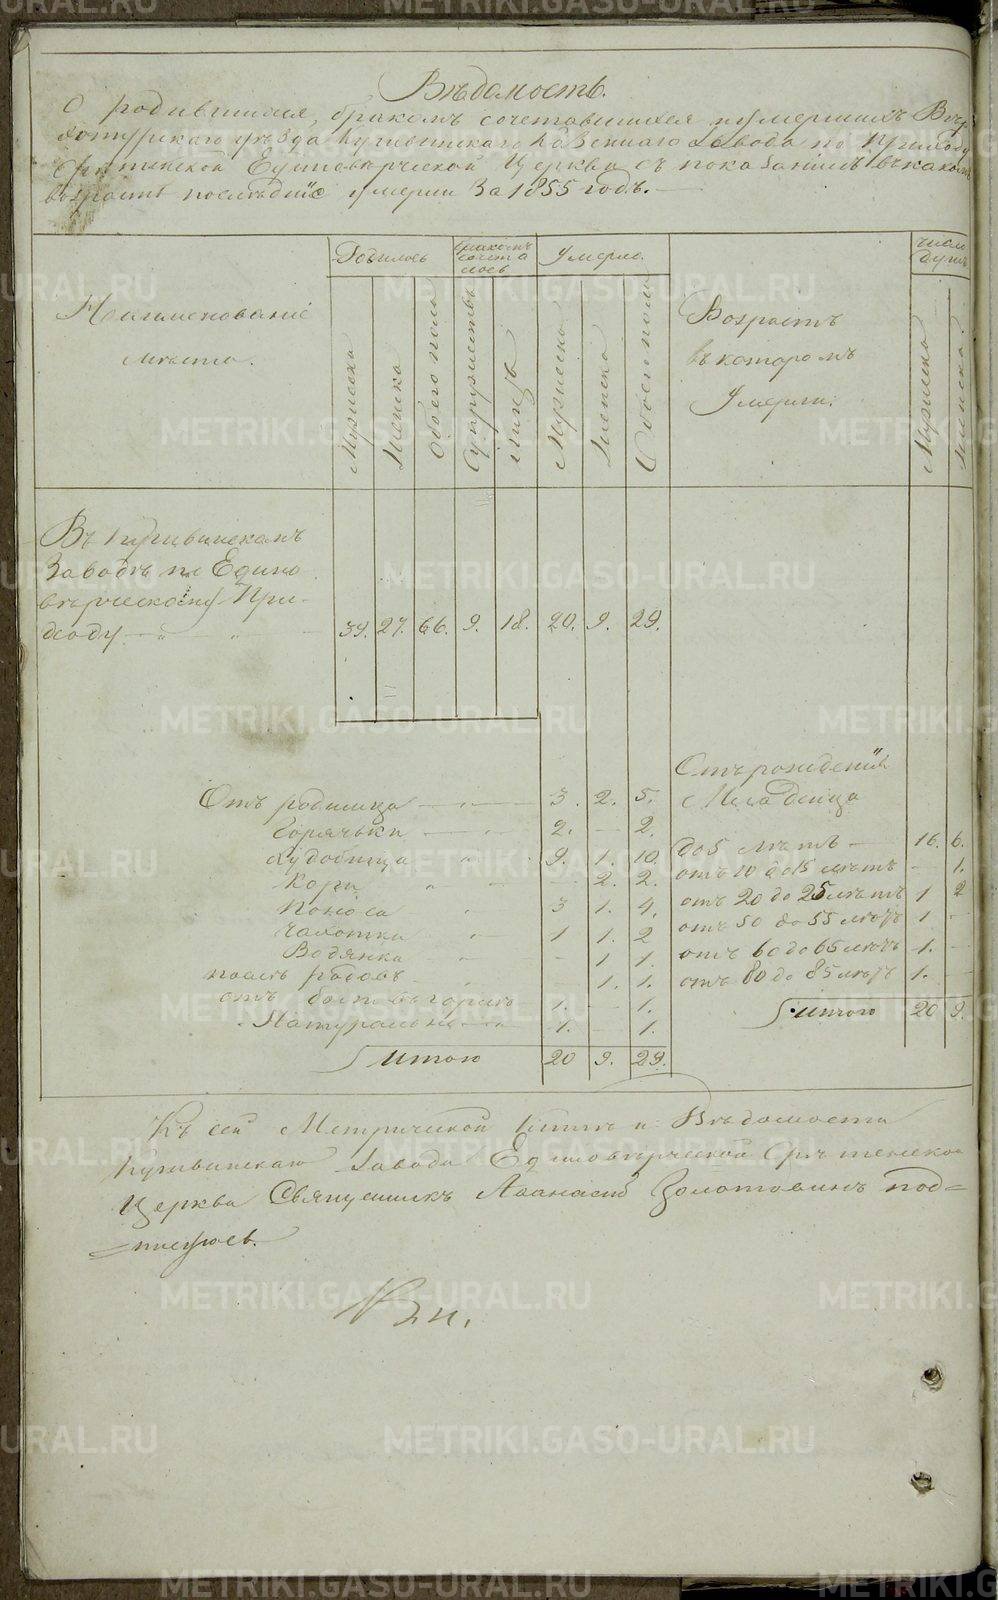 Вѣдомость.
О родившихся, бракомъ сочетавшихся и умершихъ Верх
хотурскаго уѣзда Кушвинскаго Казеннаго Завода по приходу
Срѣтенской Единовѣрческой Церкви съ показанiемъ въ какомъ
возрастѣ послѣднiе умерли За 1855 годъ.
Наименованiе
мѣста.
Родилось
Мужеска
Женска
Обоего пола
Бракомъ
сочета
лось
Супружествъ
лицъ
Умерло.
Мужеска
Женска
Обоего пола
Возрастъ
въ которомъ
Умерли.
число
душъ
Мужеска
Женска.
Въ Кушвинскомъ
Заводѣ по Едино
вѣрческому При-
ходу — „ „ 39. 27. 66. 9. 18. 20. 9. 29.
Отъ родимца — „ — 3. 2. 5.
Горячьки — „ 2. — 2.
Худобища „ „ 9. 1. 10.
Кори „ — 2. 2.
Поноса — „ 3 1. 4.
Чахотки „ — 1 1. 2
Водянка „ — 1 1.
послѣ родовъ — „ — 1. 1.
отъ боли въ горлѣ 1. — 1.
Натурально — „ 1. — 1.
Итого 20 9. 29.
Отъ рожденiя
Младенца
до 5 лѣтъ — 16. 6.
отъ 10 до 15 лѣтъ — 1.
отъ 20 до 25 лѣтъ 1 2
отъ 50 до 55 лѣтъ 1 —
отъ 60 до 65 лѣтъ 1. —
отъ 80 до 85 лѣтъ 1. —
Итого 20 9.
Къ сей Метрической Книгѣ и Вѣдомости
Кушвинскаго Завода Единовѣрческой Срѣтенской
Церкви Священникъ Аѳанасiй Золотовинъ под=
=писуюсь.
METRIKI.GASO-URAL.RU